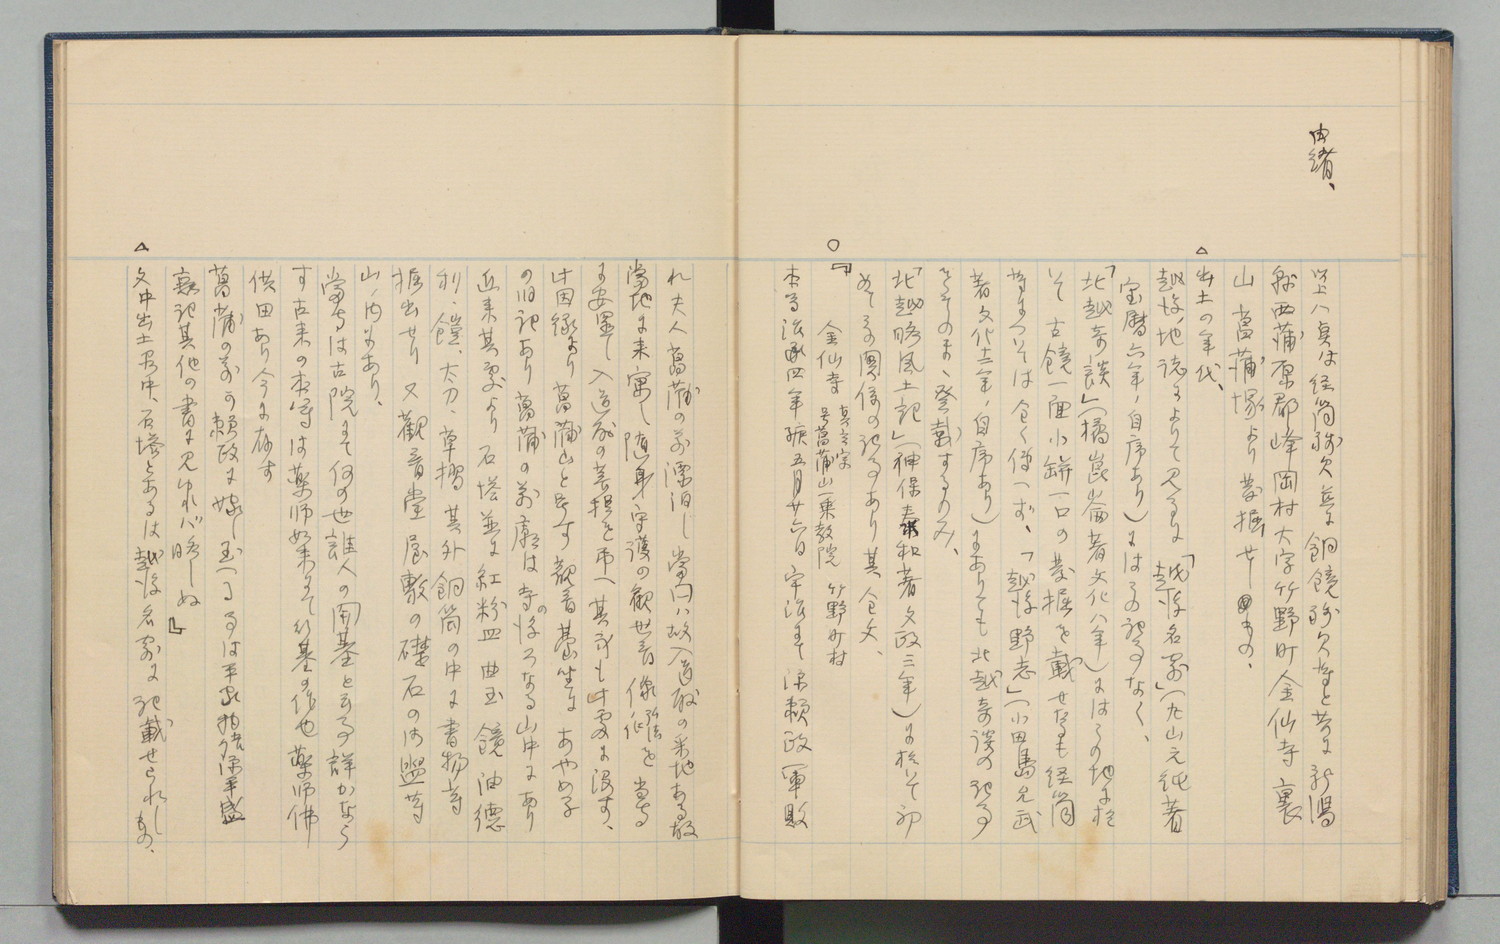 由緒、
以上八点は経筒残欠並に銅鏡残欠等と共に新潟
縣西蒲原郡峰岡村大字竹野町金仙寺裏
山菖蒲塚より発掘せしもの、
△
出土の年代、
越後地誌によりて見るに「越後名寄」(丸山元純著
宝暦六年、自序あり)にはその記事なく、
「北越奇談」(橘崑崙著文化八年)にはこの地に於
いて古鏡一面小餅一口の発掘を載せたるも経筒
等については全く伝へず、「越後野志」(小田島允武
著文化十二年、自序あり)にありても北越奇談の記事
をそのまゝ登載するのみ、
「北越略風土記」(神保泰和著文政三年)に於いて初
めてその関係の記事あり其全文、
○
『金仙寺 真言宗 号菖蒲山一乗教院 竹野町村
本寺治承四年五月廿六日宇治にて源頼政軍敗
れ夫人菖蒲の前漂泊し当国ハ故入道殿の采地ある故
当地に来寓し随身守護の観世音像 弘法作 を当寺
に安置し入道殿の菩提を弔へ其身も此処に没す、
此因縁より菖蒲山と号す観音基坐に あやめ子
の旧記あり菖蒲の前廟は寺の後ろなる山中にあり
近来其処より石塔並に紅粉皿曲玉鏡油徳
利、鎧、太刀、草摺其外銅筒の中に書物等
掘出せり又観音堂屋敷の礎石の満盥等
山ノ内にあり、
当寺は古院にて何の世誰人の開基と云事詳かなら
す古来の本尊は薬師如来にて行基の作也薬師佛
供田あり今に存す
菖蒲の前の頼政に嫁し玉へる事は平家物語源平盛
衰記其他の書に見ゆれバ略しぬ』
△
文中出土品中、石塔とあるは越後名寄に記載せられしもの、